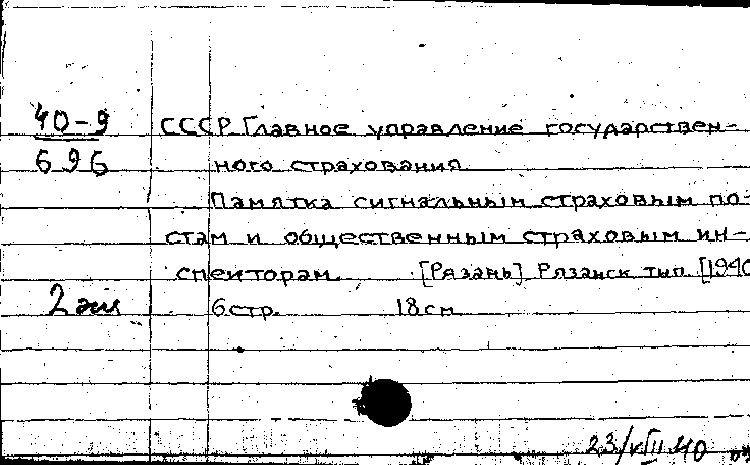 40-9 СССР Главное управление государствен-
696 ного страхования.
Памятка сигнальным страховым по-
стам и общественным страховым ин-
спекторам. [Рязань] Рязанск тип [1940
2 экз 6 стр. 18 см
23/VIII 40